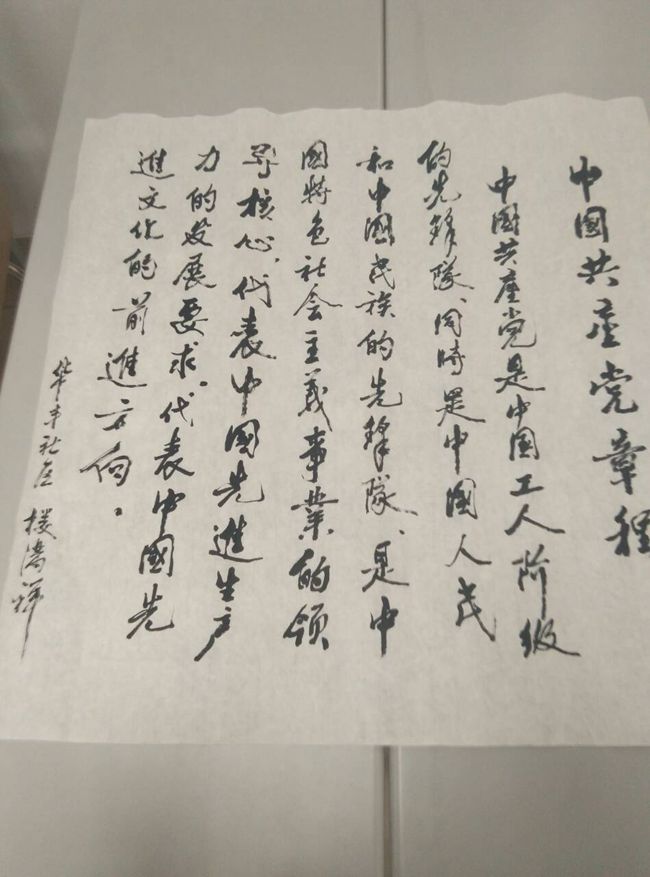 中國共產党章程
中國共產党是中国工人阶级
的先鋒隊、同時是中国人民
和中國民族的先鋒隊、是中
國特色社会主義事業的领
导核心、代表中国先進生产
力的发展要求、代表中國先
進文化的前進方向。
华丰社区 楼